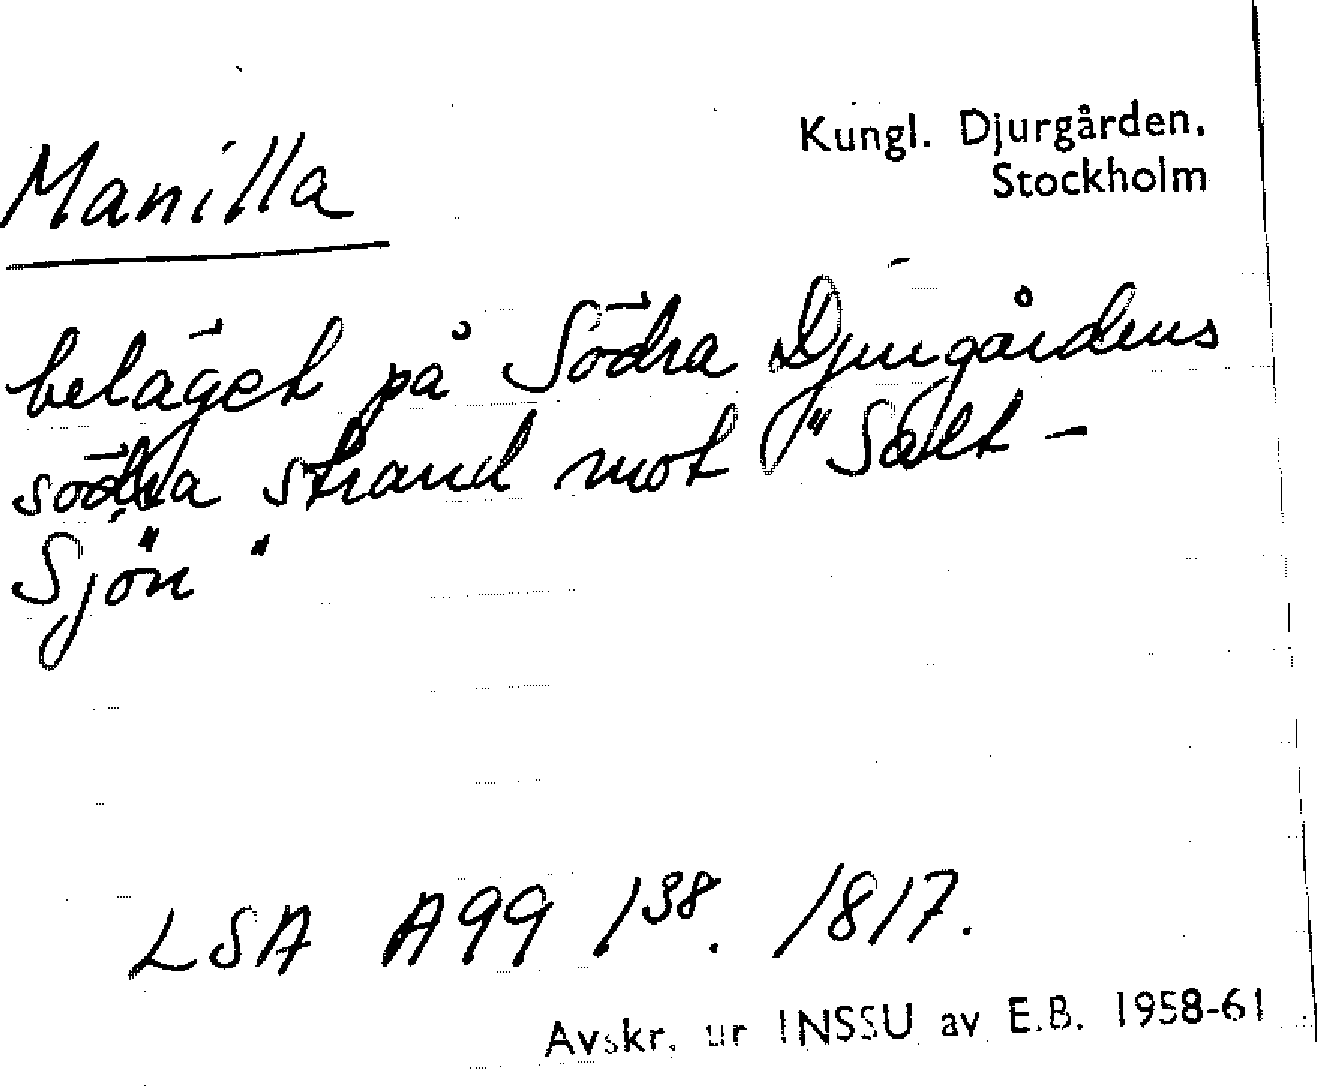 Kungl. Djurgården.
Stockholm
Manilla
beläget på Södra Djurgårdens
södra strand mot "Salt-
Sjön"
LSA A99 1³⁸. 1817.
Avskr. ur INSSU av E.B. 1958-61